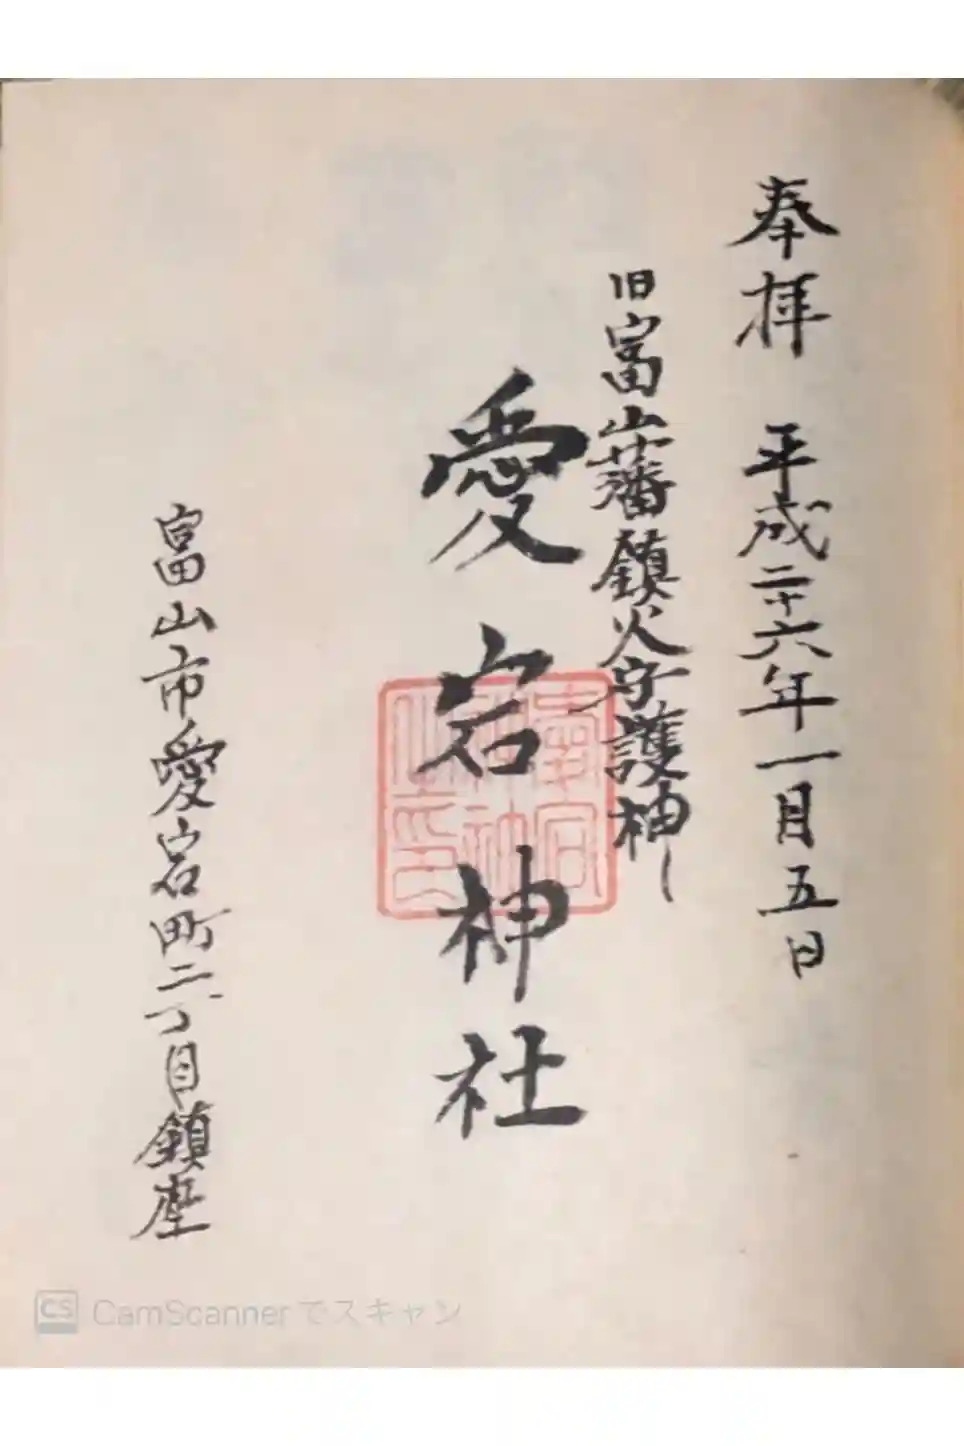 奉拝 平成二十六年一月五日
旧富山藩鎮火守護神
愛宕神社
富山市愛宕町二丁目鎮座
CS CamScannerでスキャン